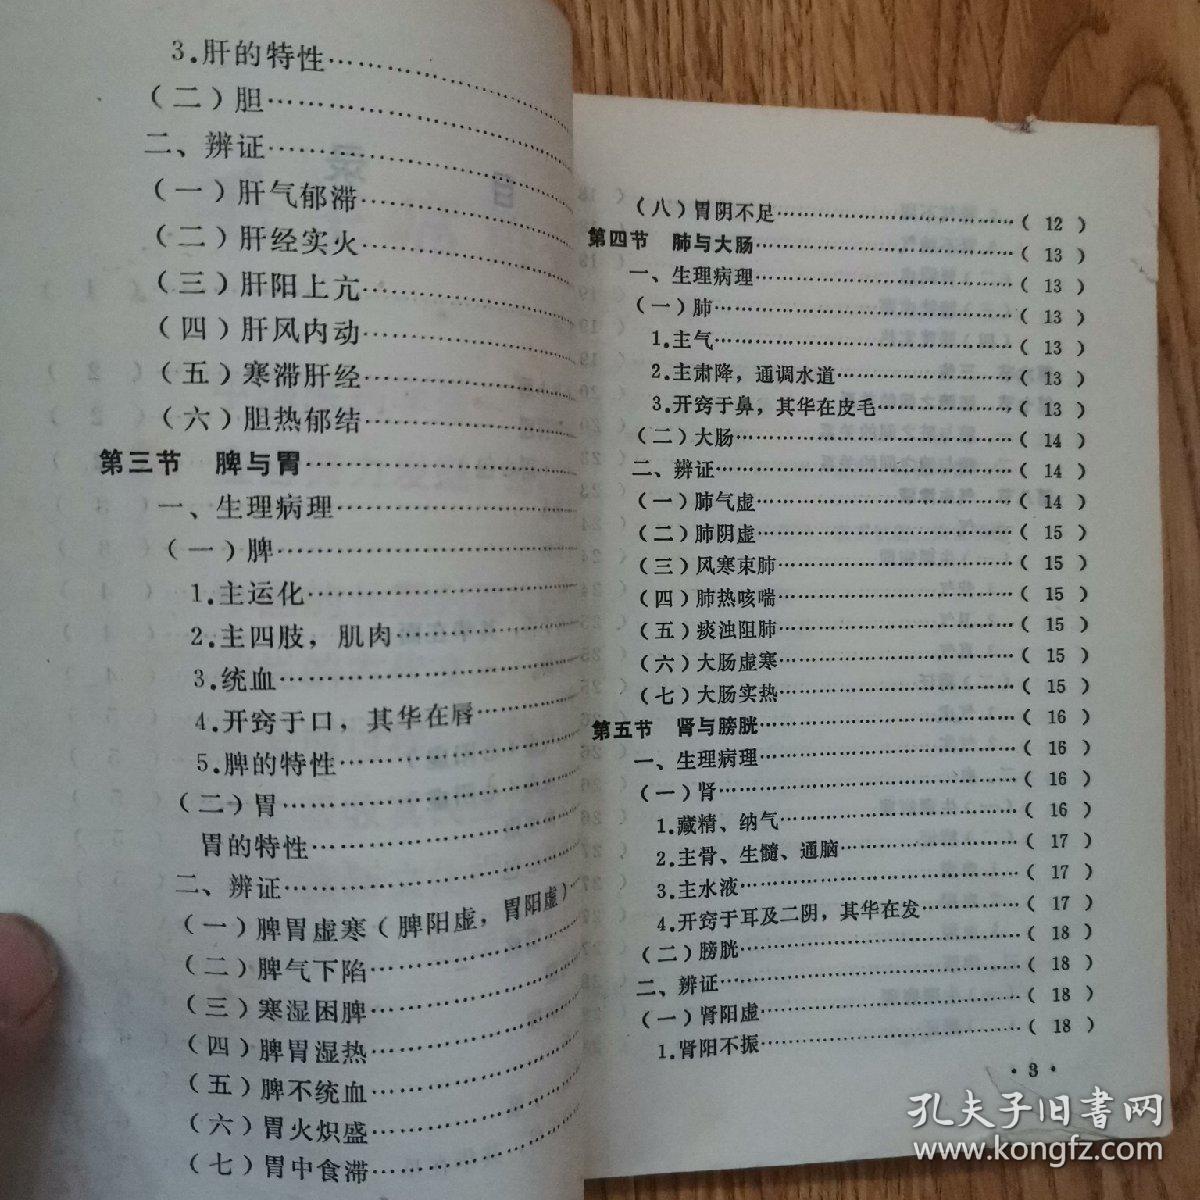 3.肝的特性
（二）胆
二、辨证
（一）肝气郁滞
（二）肝经实火
（三）肝阳上亢
（四）肝风内动
（五）寒滞肝经
（六）胆热郁结
第三节 脾与胃
一、生理病理
（一）脾
1.主运化
2.主四肢，肌肉
3.统血
4.开窍于口，其华在唇
5.脾的特性
（二）胃
胃的特性
二、辨证
（一）脾胃虚寒（脾阳虚，胃阳虚）
（二）脾气下陷
（三）寒湿困脾
（四）脾胃湿热
（五）脾不统血
（六）胃火炽盛
（七）胃中食滞
（八）胃阴不足……（12）
第四节 肺与大肠……（13）
一、生理病理……（13）
（一）肺……（13）
1.主气……（13）
2.主肃降，通调水道……（13）
3.开窍于鼻，其华在皮毛……（13）
（二）大肠……（14）
二、辨证……（14）
（一）肺气虚……（14）
（二）肺阴虚……（15）
（三）风寒束肺……（15）
（四）肺热咳喘……（15）
（五）痰浊阻肺……（15）
（六）大肠虚寒……（15）
（七）大肠实热……（15）
第五节 肾与膀胱……（16）
一、生理病理……（16）
（一）肾……（16）
1.藏精、纳气……（16）
2.主骨、生髓、通脑……（17）
3.主水液……（17）
4.开窍于耳及二阴，其华在发……（17）
（二）膀胱……（18）
二、辨证……（18）
（一）肾阳虚……（18）
1.肾阳不振……（18）
·3·
孔夫子旧书网
www.kongfz.com